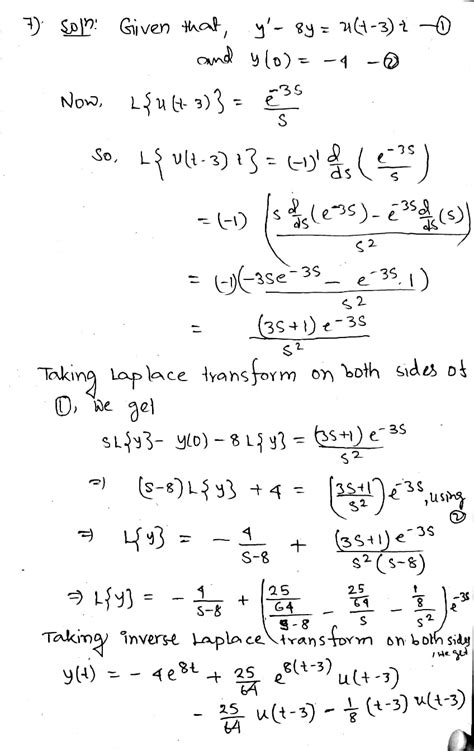 7) Soln: Given that, y' - 8y = u(t-3) t —①
and y(0) = -4 —②
Now, L{u(t-3)} = e^-3s / s
So, L{u(t-3) t} = (-1)' d/ds (e^-3s / s)
= (-1) [s d/ds (e^-3s) - e^-3s d/ds (s)] / s2
= (-1)(-3se^-3s - e^-3s . 1) / s2
= (3s+1) e^-3s / s2
Taking Laplace transform on both sides of
①, we get
sL{y} - y(0) - 8 L{y} = (3s+1) e^-3s / s2
=) (s-8) L{y} + 4 = (3s+1 / s2) e^-3s, using ②
⇒ L{y} = - 4/s-8 + (3s+1) e^-3s / s2 (s-8)
⇒ L{y} = - 4/s-8 + (25/64 / s-8 - 25/64 / s - 1/8 / s2) e^-3s
Taking inverse Laplace transform on both sides, we get
y(t) = - 4 e^8t + 25/64 e^8(t-3) u(t-3)
- 25/64 u(t-3) - 1/8 (t-3) u(t-3)